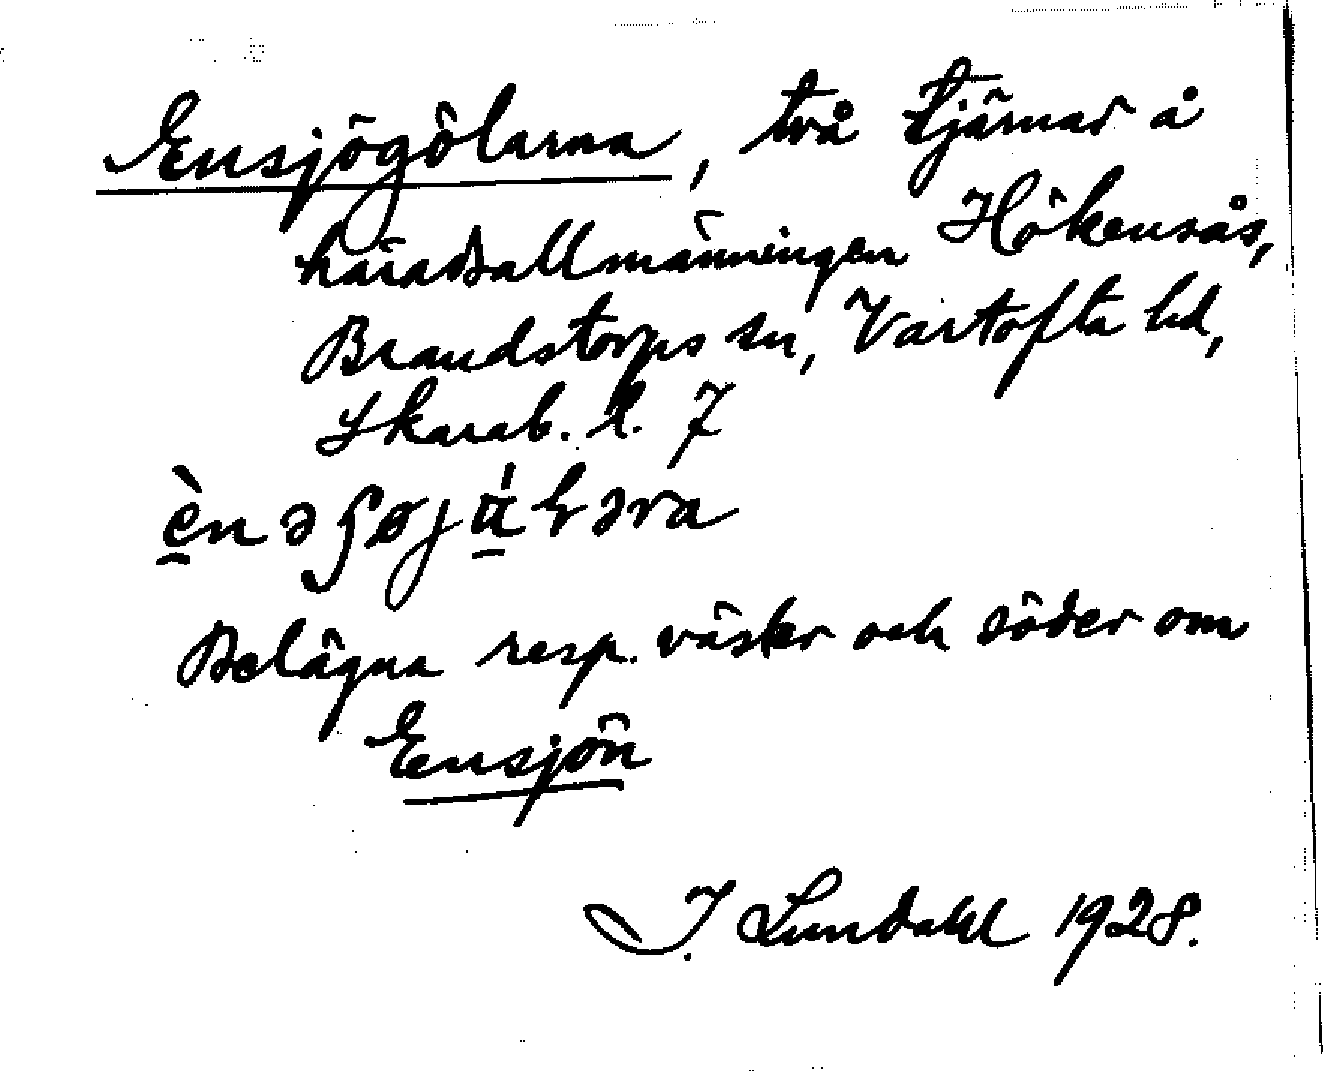 Ensjögölarna, två tjärnar å
häradsallmänningen Hökensås,
Brandstorps sn, Vartofta hd,
Skarab. l. 7
Belägna resp. väster och söder om
Ensjön
I. Lundahl 1928.